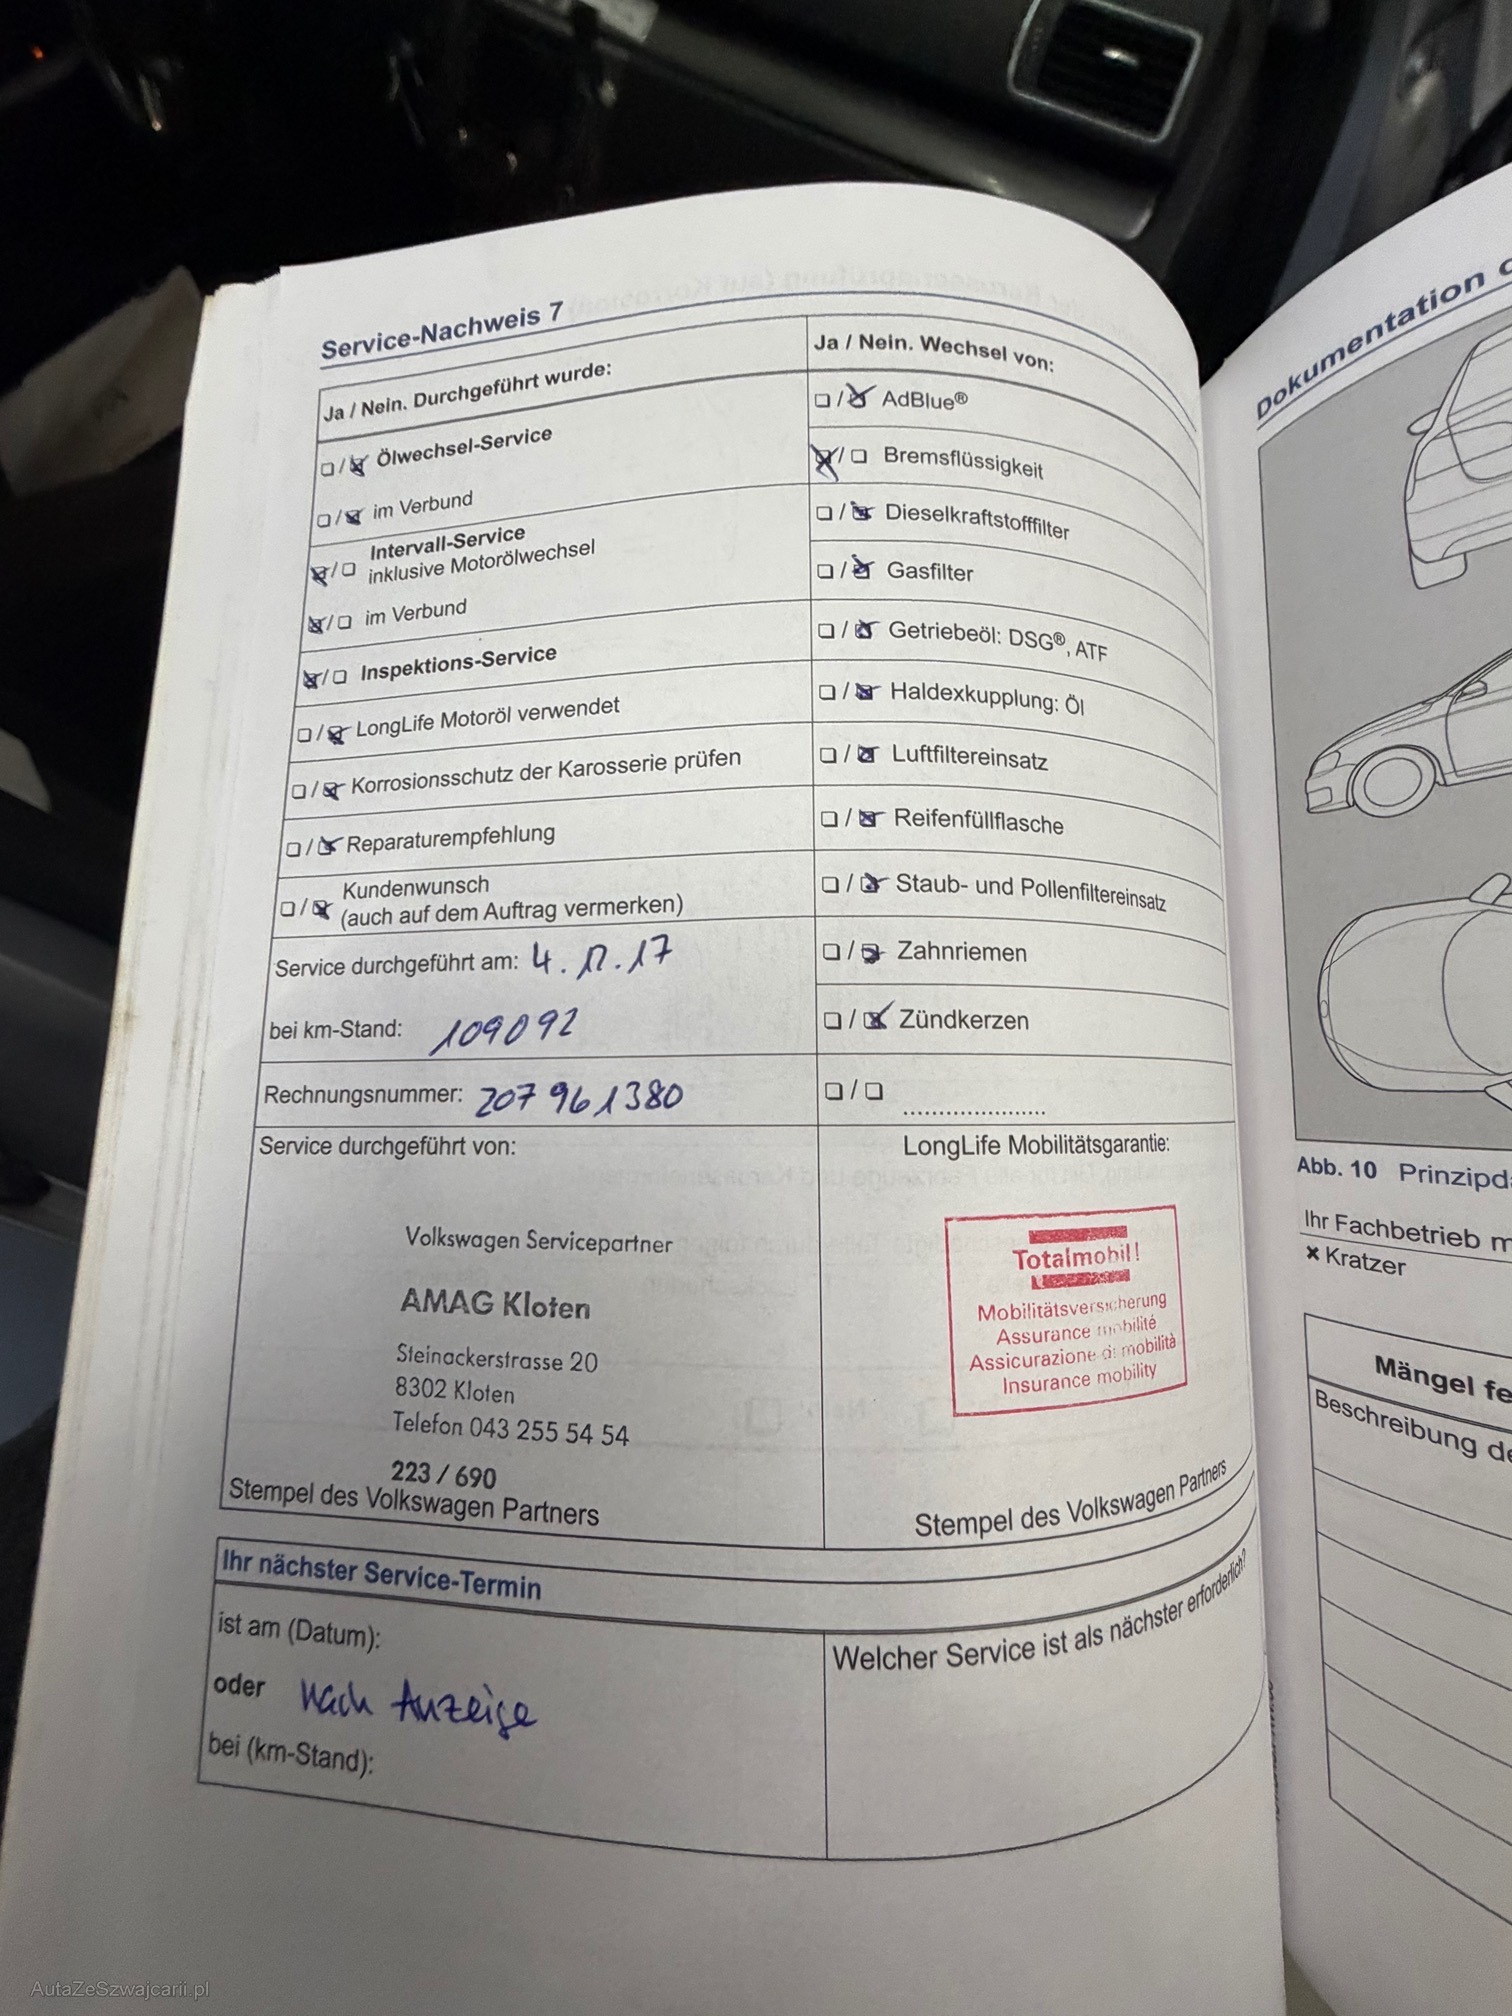 Service-Nachweis 7
Ja / Nein. Durchgeführt wurde:
❏ / ☒ Ölwechsel-Service
❏ / ☒ im Verbund
☒ / ❏ Intervall-Service
inklusive Motorölwechsel
☒ / ❏ im Verbund
☒ / ❏ Inspektions-Service
❏ / ☒ LongLife Motoröl verwendet
❏ / ☒ Korrosionsschutz der Karosserie prüfen
❏ / ☒ Reparaturempfehlung
❏ / ☒ Kundenwunsch
(auch auf dem Auftrag vermerken)
Service durchgeführt am: 4.12.17
bei km-Stand: 109092
Rechnungsnummer: 207 961380
Service durchgeführt von:
Volkswagen Servicepartner
AMAG Kloten
Steinackerstrasse 20
8302 Kloten
Telefon 043 255 54 54
223 / 690
Stempel des Volkswagen Partners
Ja / Nein. Wechsel von:
❏ / ☒ AdBlue®
☒ / ❏ Bremsflüssigkeit
❏ / ☒ Dieselkraftstofffilter
❏ / ☒ Gasfilter
❏ / ☒ Getriebeöl: DSG®, ATF
❏ / ☒ Haldexkupplung: Öl
❏ / ☒ Luftfiltereinsatz
❏ / ☒ Reifenfüllflasche
❏ / ☒ Staub- und Pollenfiltereinsatz
❏ / ☒ Zahnriemen
❏ / ☒ Zündkerzen
❏ / ❏ ......................
LongLife Mobilitätsgarantie:
Totalmobil!
Mobilitätsversicherung
Assurance mobilité
Assicurazione di mobilità
Insurance mobility
Stempel des Volkswagen Partners
Ihr nächster Service-Termin
ist am (Datum):
oder nach Anzeige
bei (km-Stand):
Welcher Service ist als nächster erforderlich?
Dokumentation
Abb. 10 Prinzipd
Ihr Fachbetrieb m
✖ Kratzer
Mängel fe
Beschreibung de
AutaZeSzwajcarii.pl